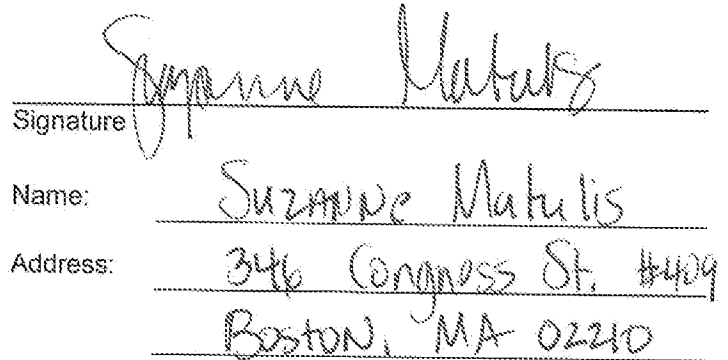 Suzanne Matulis
Signature
Name: Suzanne Matulis
Address: 346 Congress St. #409
Boston, MA 02210